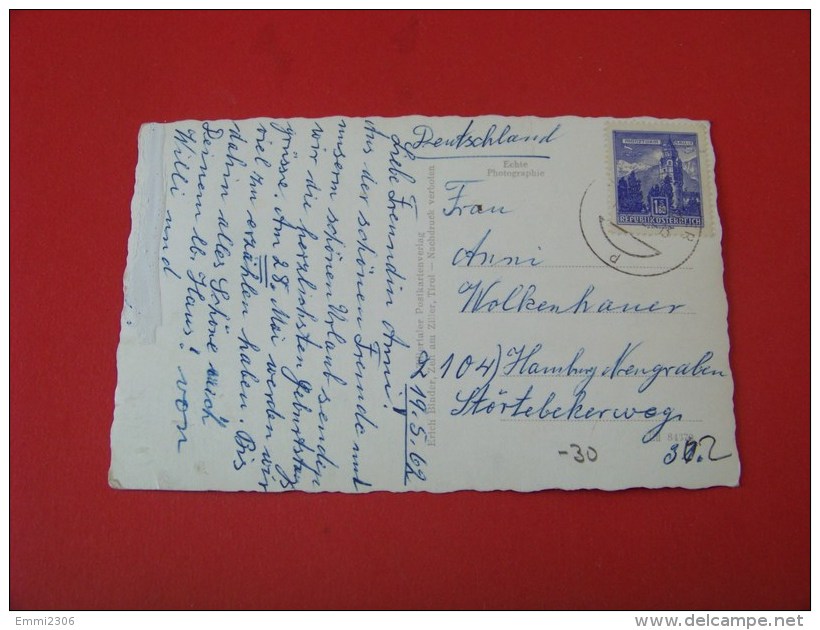 Z. 19.5.62
Liebe Freundin Anni!
Aus der schönen Fremde und
unserm schönen Urlaub senden
wir die herzlichsten Geburtstags
grüsse. Am 28. Mai werden wir
viel zu erzählen haben. Bis
dahin alles Schöne auch
Deinem lb. Hans! von
Willi und
Deutschland
Echte
Photographie
Zillertaler Postkartenverlag
Erich Binder, Zell am Ziller, Tirol — Nachdruck verboten
Frau
Anni
Wolkenhauer
Hamburg Neugraben
Störtebekerweg
-30
1.80
REPUBLIK ÖSTERREICH
Emmi2306
delcampe.net